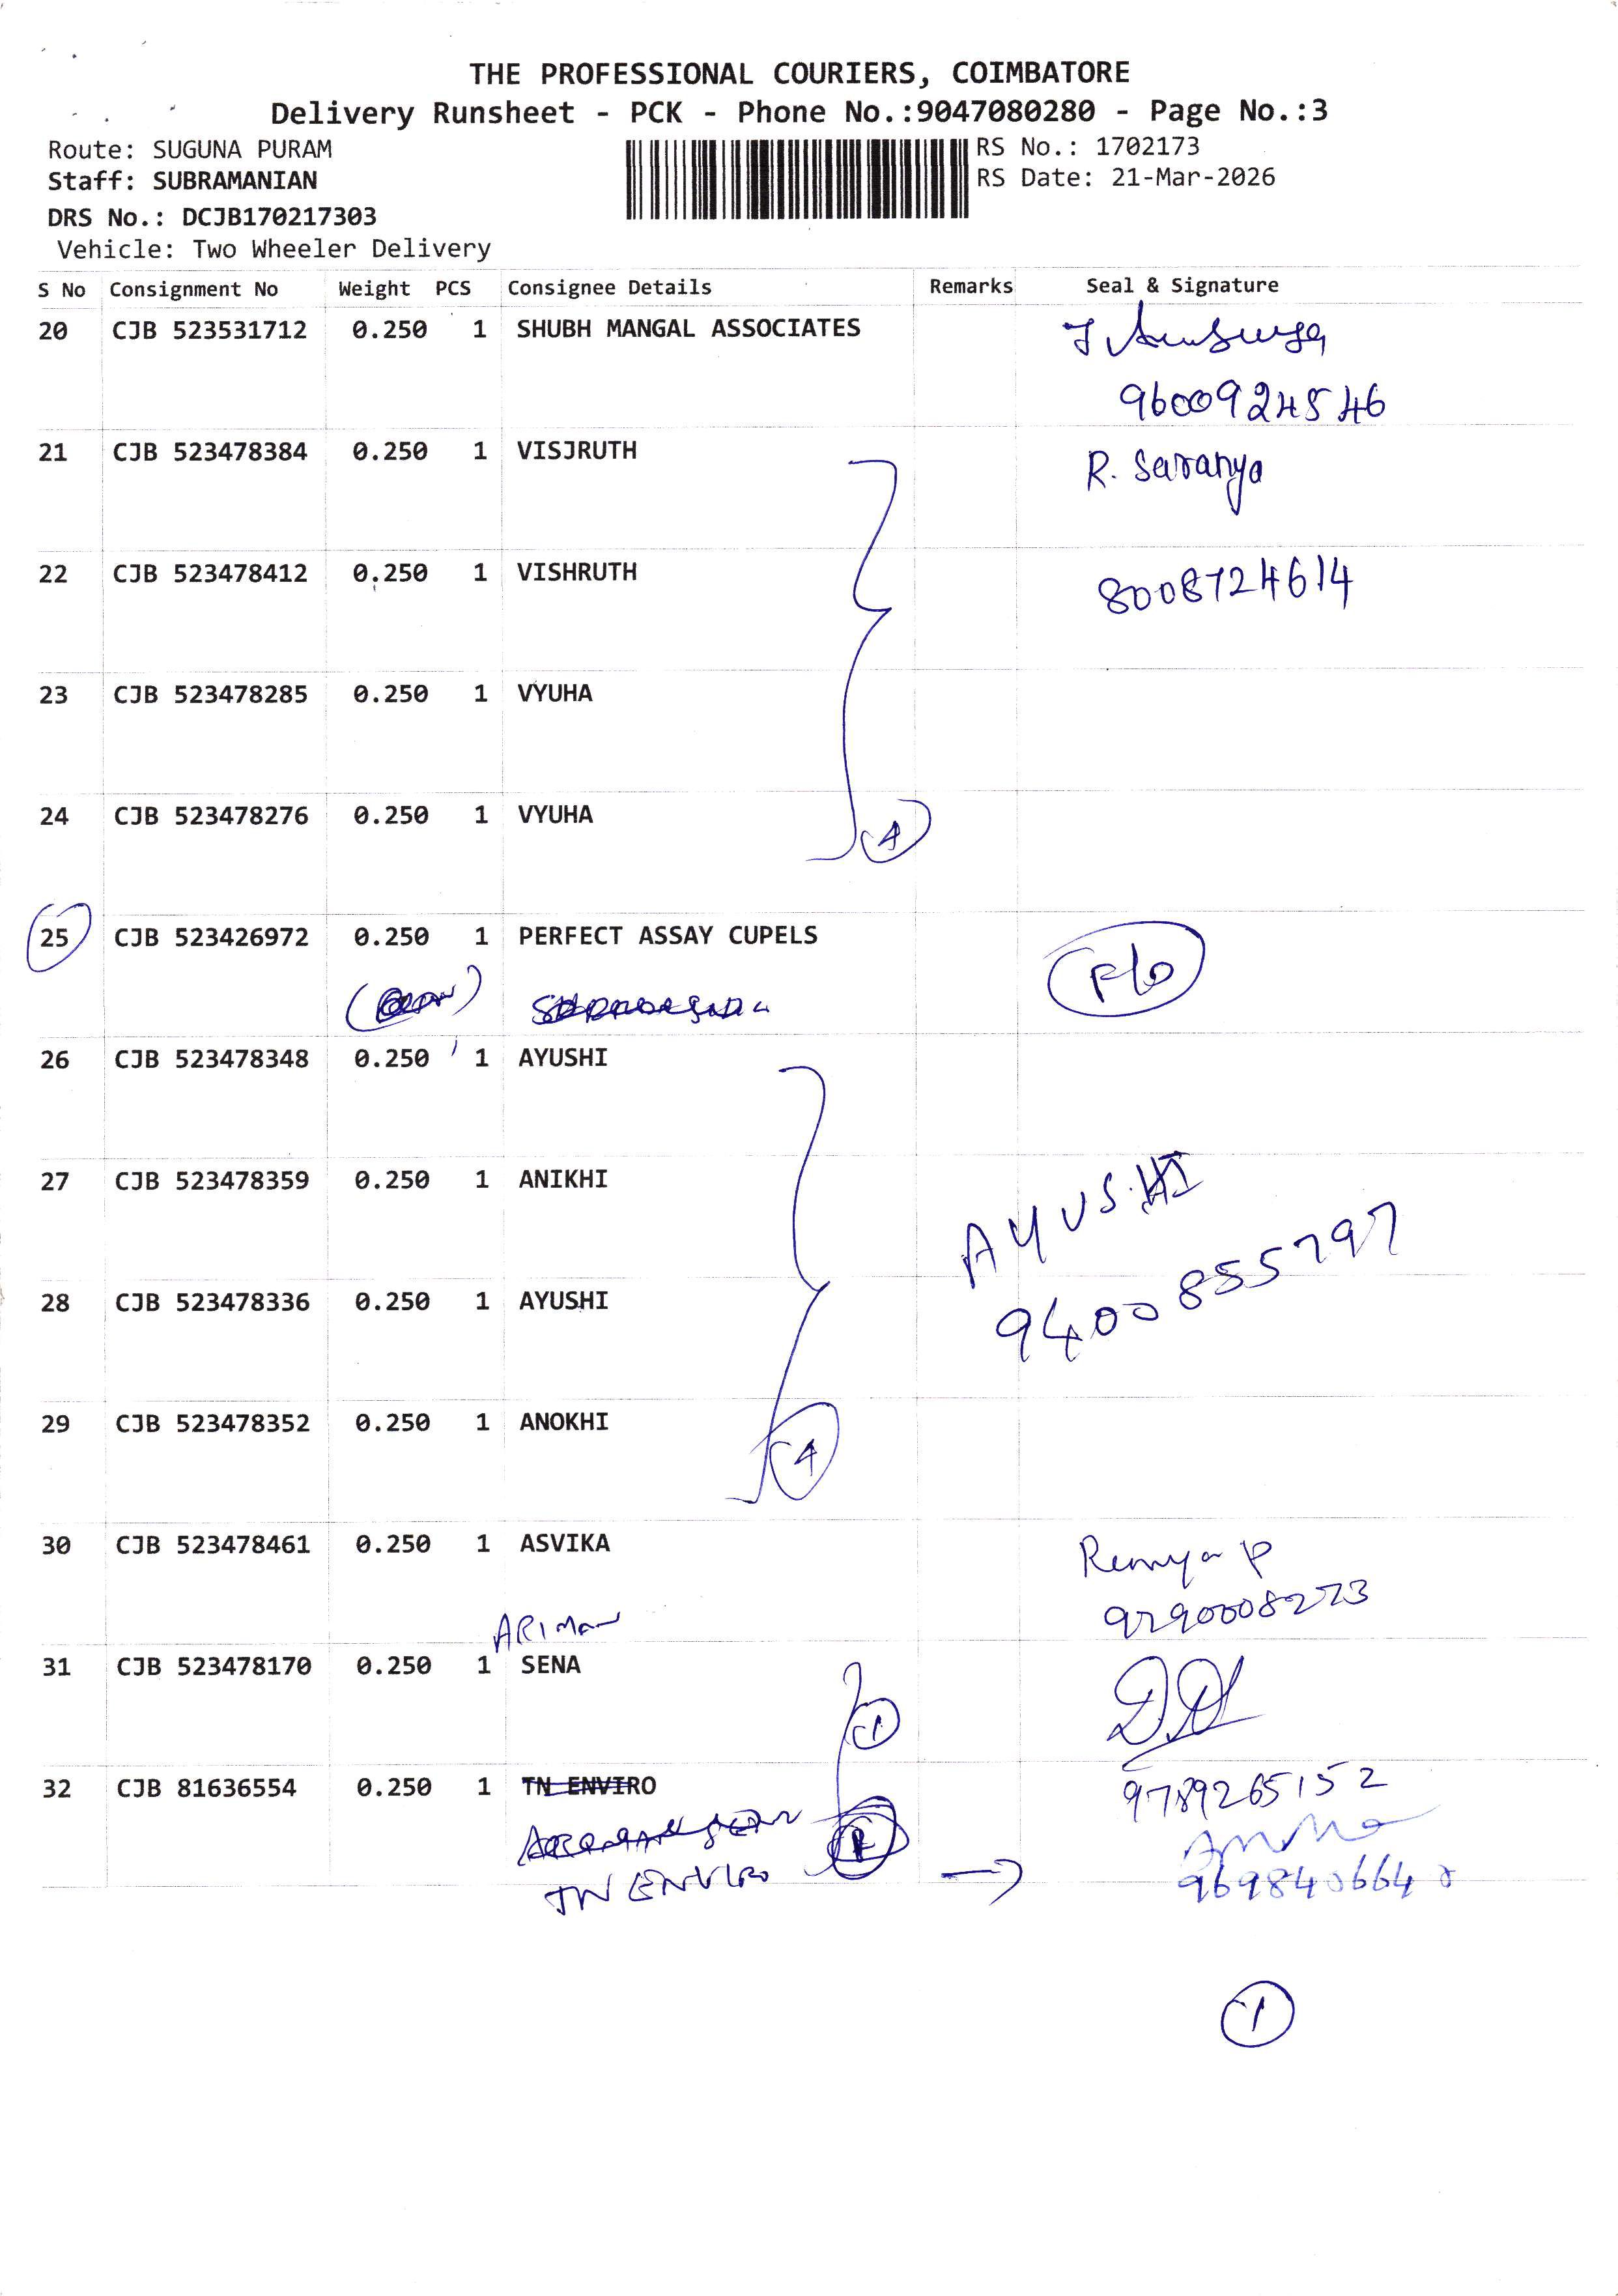 THE PROFESSIONAL COURIERS, COIMBATORE
Delivery Runsheet - PCK - Phone No.:9047080280 - Page No.:3
Route: SUGUNA PURAM
Staff: SUBRAMANIAN
DRS No.: DCJB170217303
Vehicle: Two Wheeler Delivery
RS No.: 1702173
RS Date: 21-Mar-2026
S No Consignment No Weight PCS Consignee Details Remarks Seal & Signature
20 CJB 523531712 0.250 1 SHUBH MANGAL ASSOCIATES
9600924546
21 CJB 523478384 0.250 1 VISJRUTH R. Saranya
22 CJB 523478412 0.250 1 VISHRUTH 8008724614
23 CJB 523478285 0.250 1 VYUHA
24 CJB 523478276 0.250 1 VYUHA
4
25 CJB 523426972 0.250 1 PERFECT ASSAY CUPELS
26 CJB 523478348 0.250 1 AYUSHI
27 CJB 523478359 0.250 1 ANIKHI AYUSHI
28 CJB 523478336 0.250 1 AYUSHI 9400855797
29 CJB 523478352 0.250 1 ANOKHI
4
30 CJB 523478461 0.250 1 ASVIKA Remya P
ARIMAN
31 CJB 523478170 0.250 1 SENA
1
32 CJB 81636554 0.250 1 TN ENVIRO 9789265152
TN ENVIRO
9698406640
1